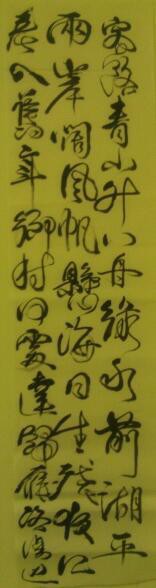 客路青山外行舟綠水前潮平
兩岸闊風帆懸海日生殘夜江
春入舊年鄉書何處達歸雁洛陽邊